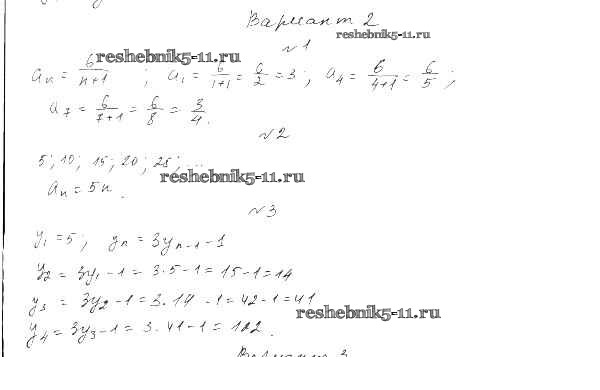 Вариант 2
reshebnik5-11.ru
№1
reshebnik5-11.ru
aₙ = 6/(n+1) ; a₁ = 6/(1+1) = 6/2 = 3 ; a₄ = 6/(4+1) = 6/5 ;
a₇ = 6/(7+1) = 6/8 = 3/4.
№2
5; 10; 15; 20; 25; ...
reshebnik5-11.ru
aₙ = 5n.
№3
y₁ = 5; yₙ = 3yₙ₋₁ - 1
y₂ = 3y₁ - 1 = 3·5 - 1 = 15 - 1 = 14
y₃ = 3y₂ - 1 = 3·14 - 1 = 42 - 1 = 41
reshebnik5-11.ru
y₄ = 3y₃ - 1 = 3·41 - 1 = 122.